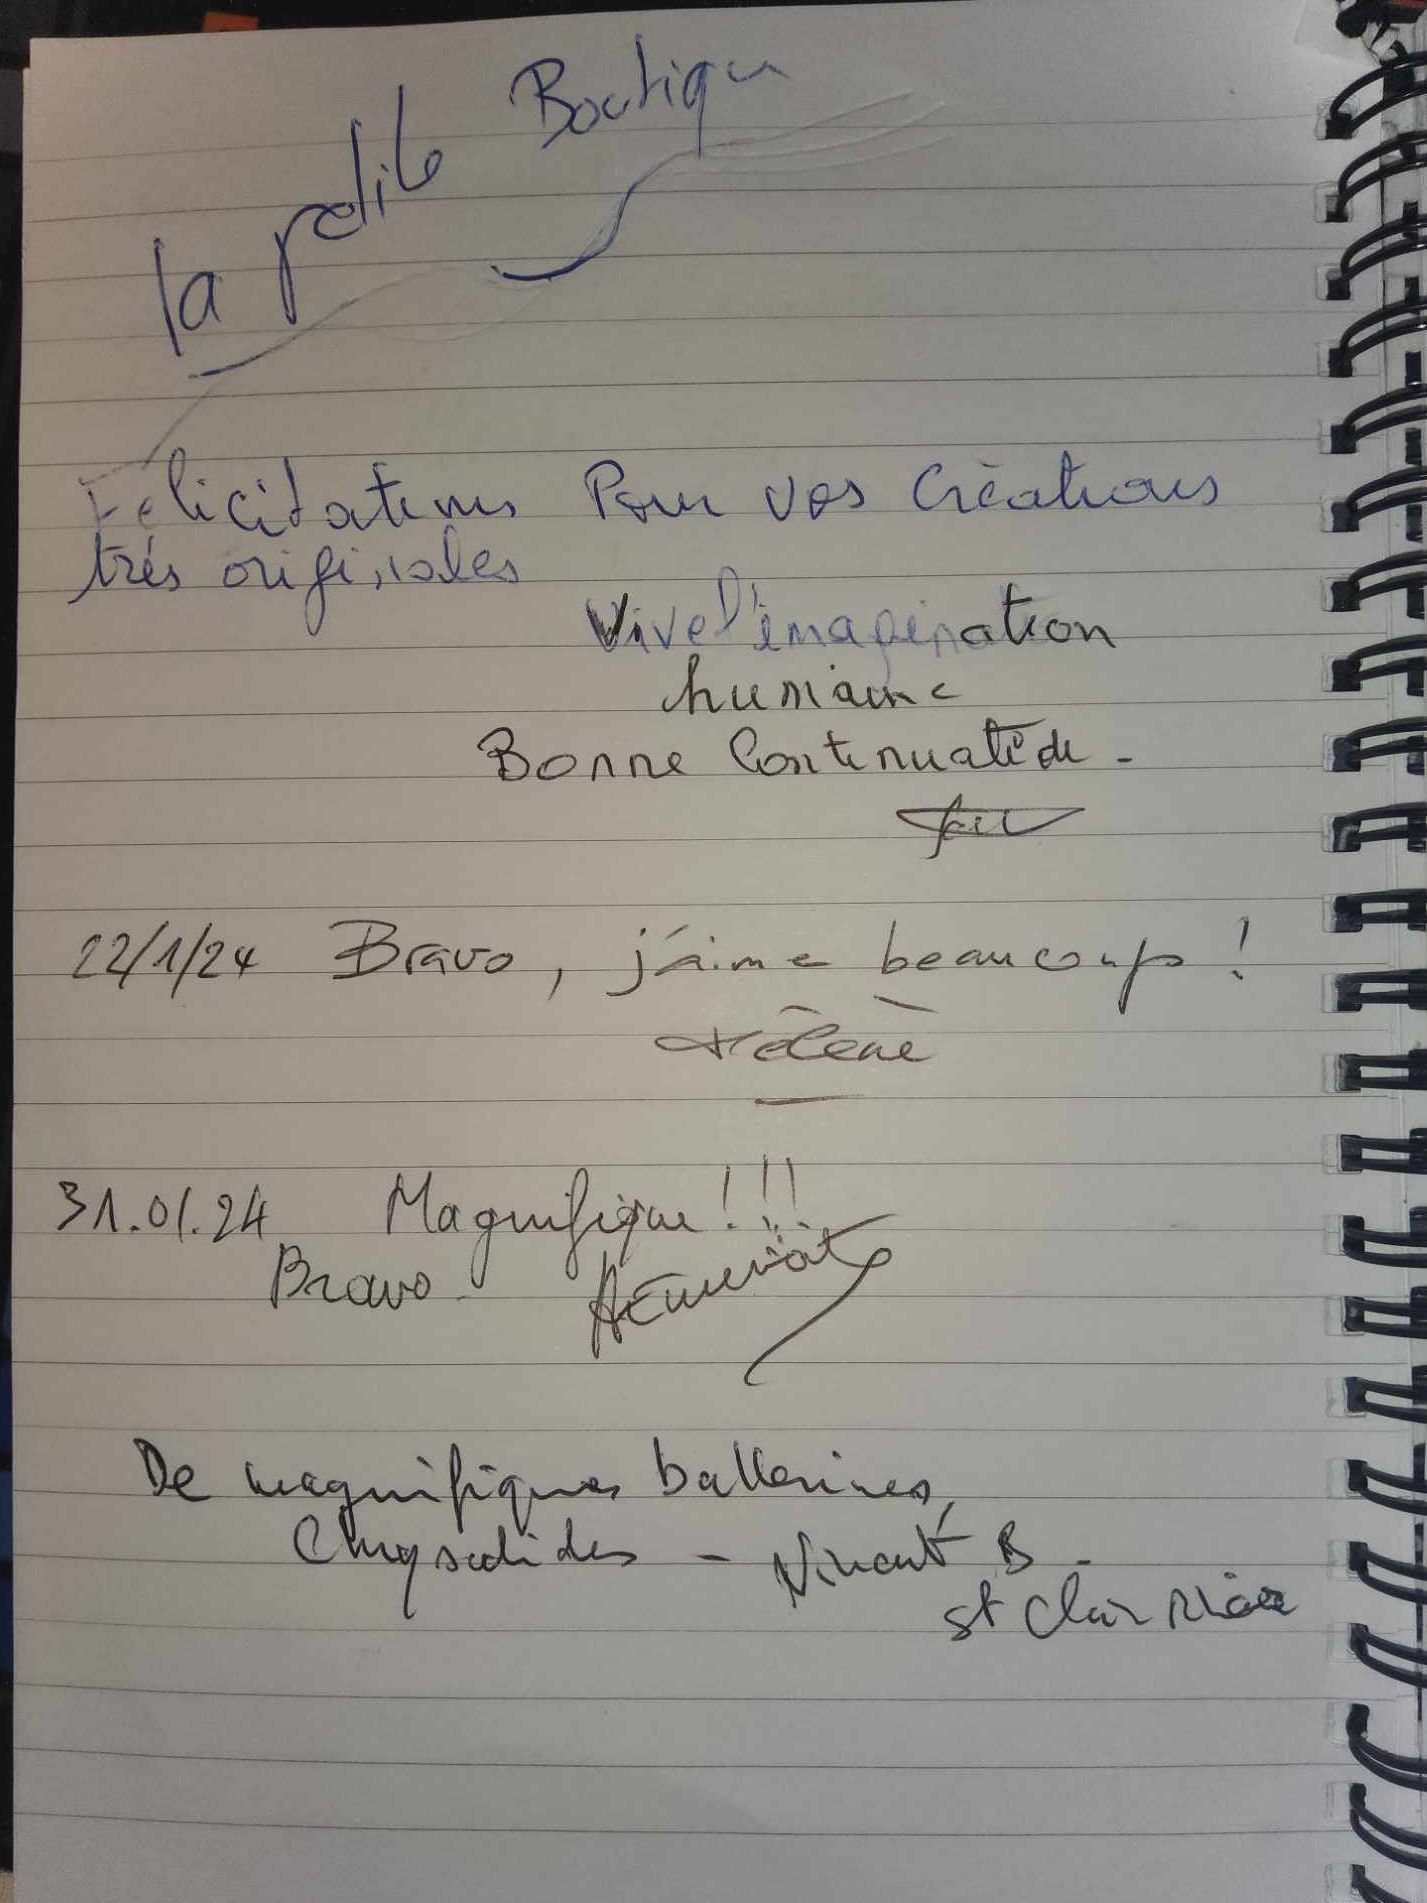 la petite Boutique
Félicitations Pour vos Créations
très originales
Vive l'imagination
humaine
Bonne Continuation -
22/1/24 Bravo, j'aime beaucoup !
Hélène
31.01.24 Magnifique ! !!
Bravo
De magnifiques ballerines,
Chrysalides - Vincent B -
St Clair